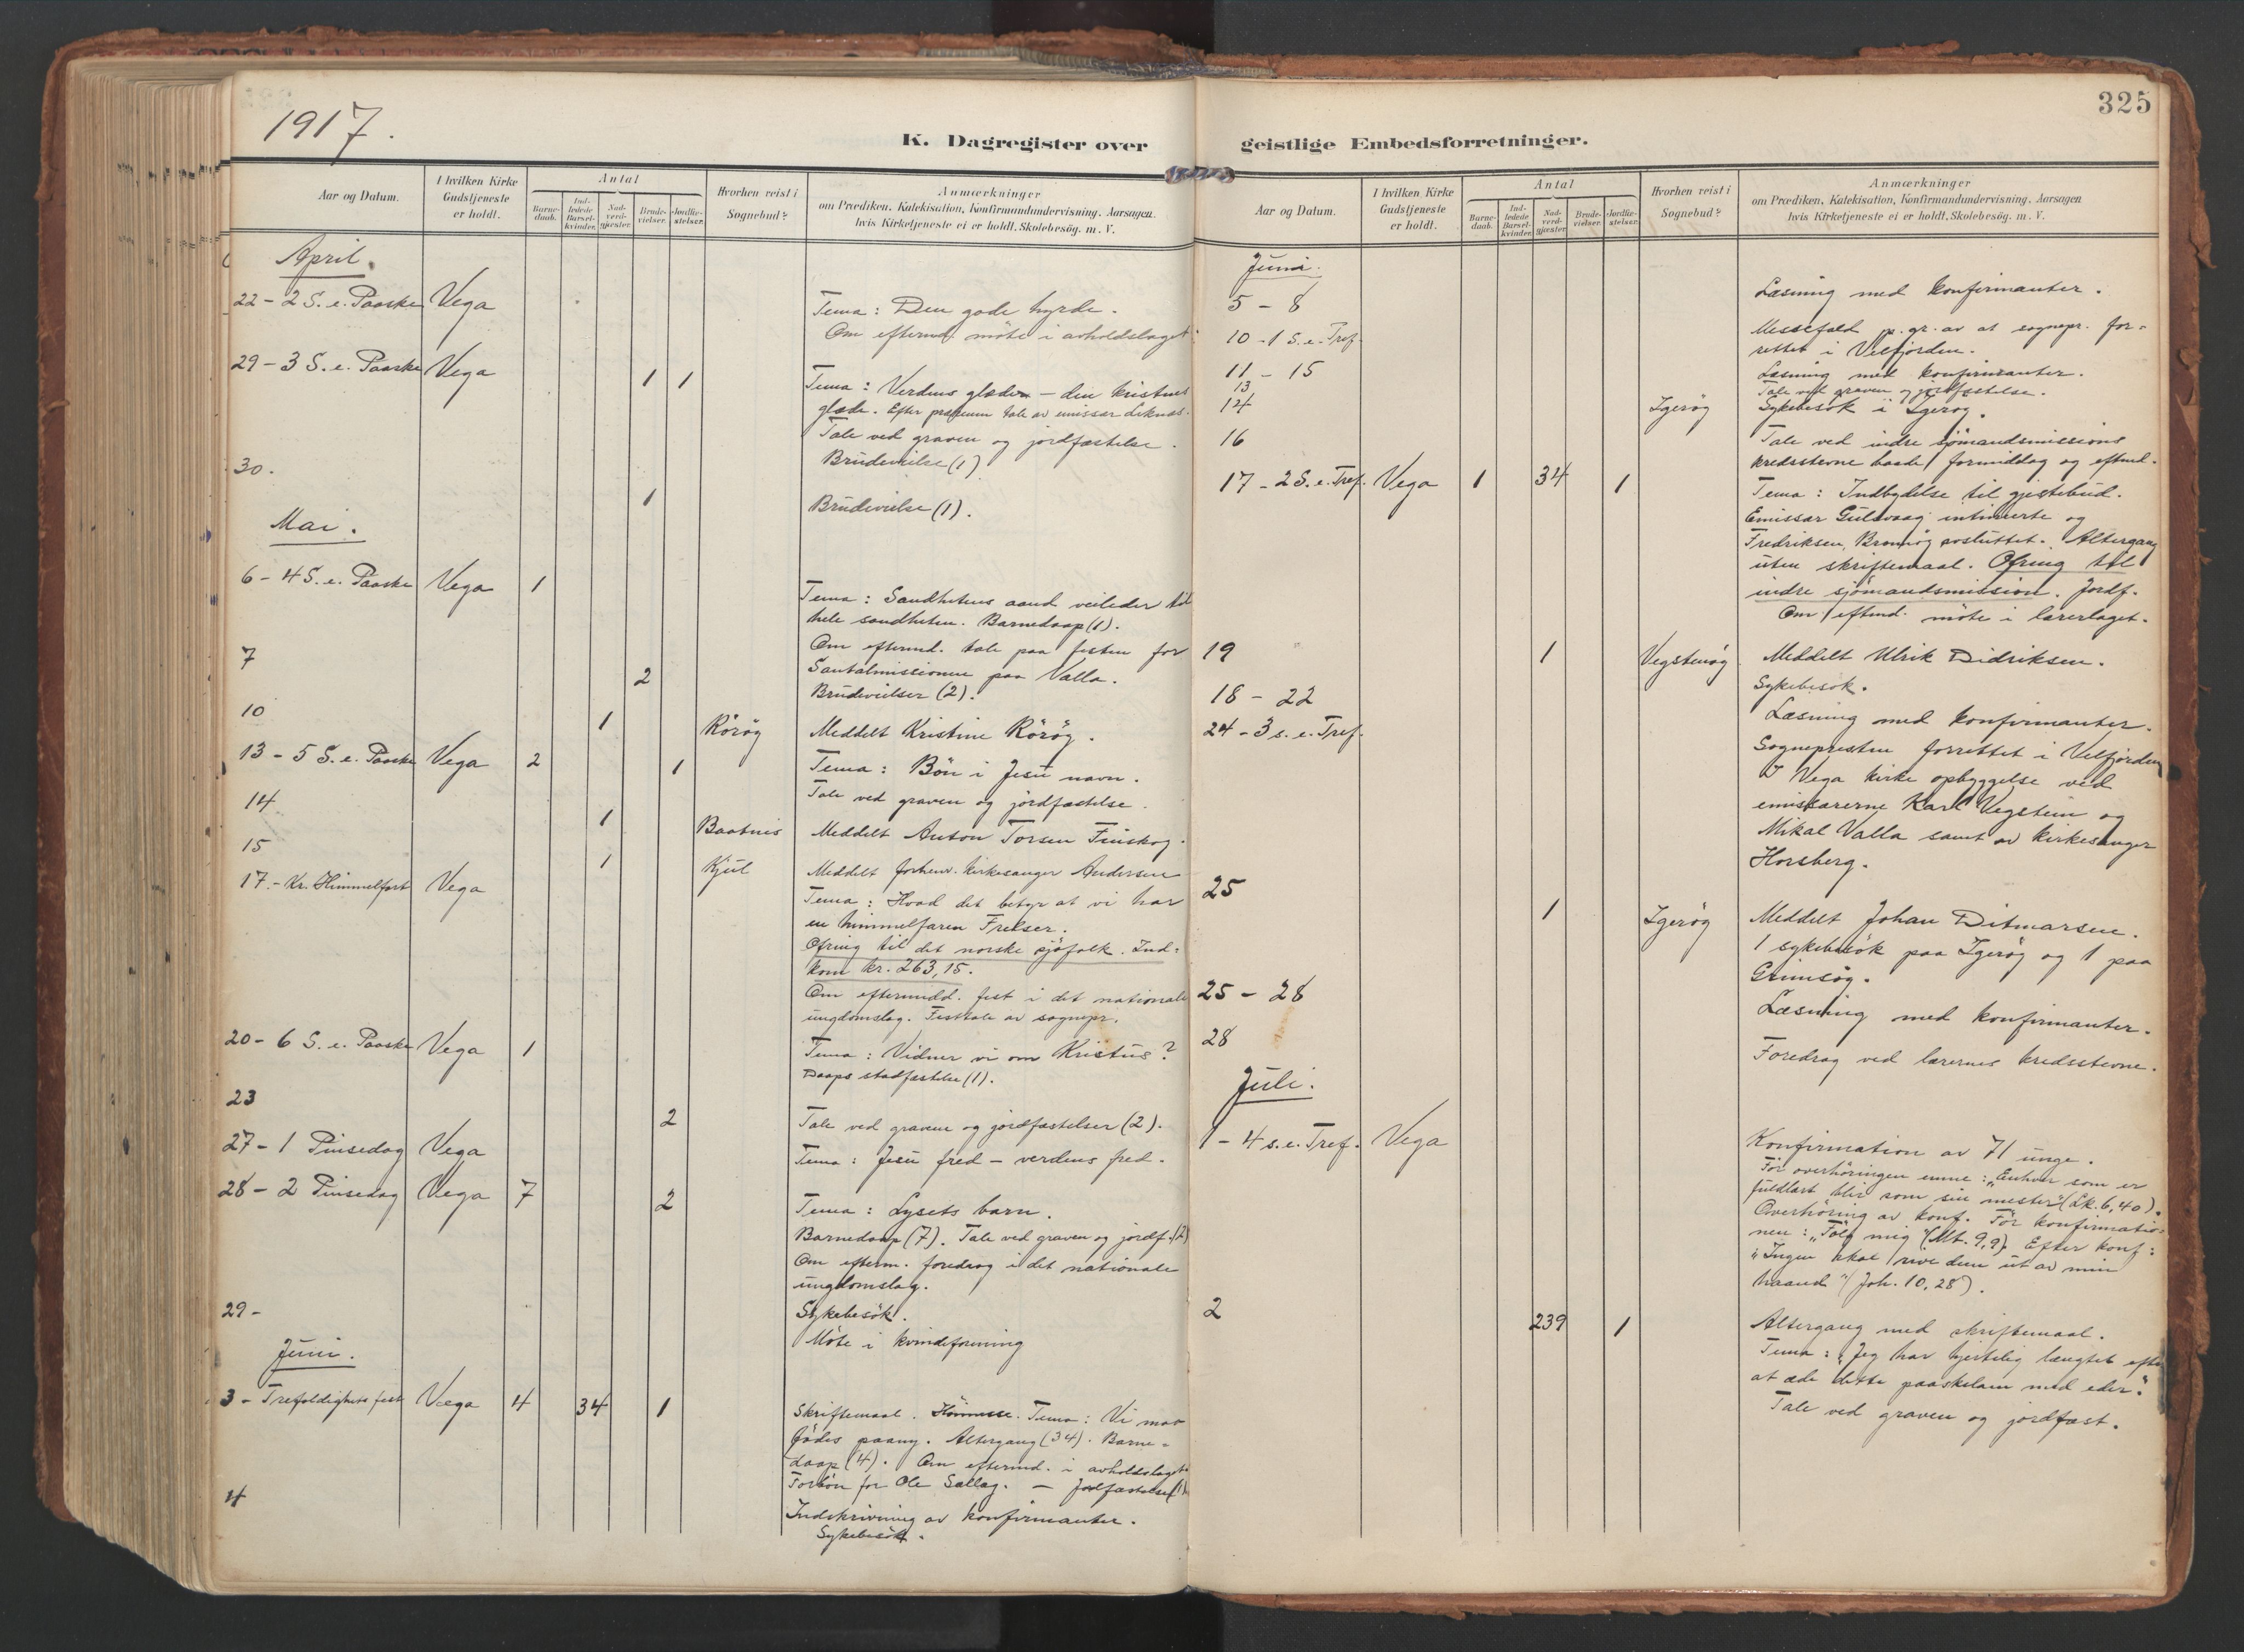 1917.
K. Dagregister over
Aar og Datum.
I hvilken Kirke Gudstjeneste er holdt.
Antal
Barne-daab.
Ind-ledede Barsel-kvinder.
Nad-verd-gjester.
Brude-vielser.
Jordfæ-stelser.
Hvorhen reist i Sognebud?
Anmærkninger
om Prædiken, Katekisation, Konfirmandundervisning, Aarsagen,
hvis Kirketjeneste ei er holdt, Skolebesög. m. V.
April.
22 - 2 S. e. Paaske Vega
Tema: Den gode hyrde.
Om eftermd. möte i avholdslaget.
29 - 3 S. e. Paaske Vega 1 1
Tema: Verdens glæde - den kristnes
glæde. Efter prækenen tale av emissær Leknæs.
Tale ved graven og jordfæstelse.
Brudevielse (1)
30. 1 Brudevielse (1).
Mai.
6 - 4 S. e. Paaske Vega 1
Tema: Sandhetens aand veileder til
hele sandheten. Barnedaap (1).
Om eftermd. tale paa festen for
Santalmissionen paa Valla.
7 2 Brudevielser (2).
10 1 Rörög Meddelt Kristine Rörög.
13 - 5 S. e. Paaske Vega 2 1 Tema: Bön i Jesu navn.
Tale ved graven og jordfæstelse.
14 1 Baatnis Meddelt Anton Torsen Finskog.
15 1 Kjul Meddelt forhenv. kirkesanger Andersen
17. - Kr. Himmelfart Vega
Tema: Hvad det betyr at vi har
en himmelfaren Frelser.
Ofring til det norske sjöfolk. Ind-
kom kr. 263,15.
Om eftermidd. fest i det nationale
ungdomslag. Festtale av sognepr.
20 - 6 S. e. Paaske Vega 1 Tema: Vidner vi om Kristus?
Daaps stadfæstelse (1).
23 2 Tale ved graven og jordfæstelser (2).
27 - 1 Pinsedag Vega Tema: Jesu fred - verdens fred.
28 - 2 Pinsedag Vega 7 2 Tema: Lysets barn.
Barnedaap (7). Tale ved graven og jordf. (2)
Om efterm. foredrag i det nationale
ungdomslag.
29 - Sykebesök.
Möte i kvindeforening
Juni.
3 - Trefoldighets fest Vega 4 34 1
Skriftemaal. Höimesse. Tema: Vi maa
födes paany. Altergang (34). Barne-
daap (4). Om eftermd. i avholdslaget.
Forbön for Ole Sællæg. - Jordfæstelse (1)
4 Indskrivning av konfirmanter.
Sykebesök.
325
geistlige Embedsforretninger.
Aar og Datum.
I hvilken Kirke Gudstjeneste er holdt.
Antal
Barne-daab.
Ind-ledede Barsel-kvinder.
Nad-verd-gjester.
Brude-vielser.
Jordfæ-stelser.
Hvorhen reist i Sognebud?
Anmærkninger
om Prædiken, Katekisation, Konfirmandundervisning, Aarsagen
hvis Kirketjeneste ei er holdt, Skolebesög. m. V.
Juni.
5 - 8 Læsning med konfirmanter.
10 - 1 S. e. Tref. Messefald p. gr. av at sognepr. for-
rettet i Velfjorden.
11 - 15 Læsning med konfirmanter.
13 Tale ved graven og jordfæstelse.
14 Igerög Sykebesök i Igerög.
16 Tale ved indre sjömandsmissions
kredsstevne baade formiddag og eftmd.
17 - 2 S. e. Tref. Vega 1 34 1
Tema: Indbydelse til gjestebud.
Emissær Gulsvaag intimerte og
Fredriksen, Brönnög avsluttet. Altergang
uten skriftemaal. Ofring til
indre sjömandsmission. Jordf.
Om eftmd. möte i lærerlaget.
19 1 Vegstenög Meddelt Ulrik Didriksen.
Sykebesök.
18 - 22 Læsning med konfirmanter.
24 - 3 s. e. Tref. Sognepresten forrettet i Velfjorden
I Vega kirke opbyggelse ved
emissærerne Karl Vegstein og
Mikal Valla samt av kirkesanger
Horsberg.
25 1 Igerög Meddelt Johan Ditmarsen.
1 sykebesök paa Igerög og 1 paa
Grimsög.
25 - 28 Læsning med konfirmanter.
28 Foredrag ved lærernes kredsstevne.
Juli.
1 - 4 s. e. Tref. Vega
Konfirmation av 71 unge.
För overhöringen emne: "Enhver som er
fuldlært blir som sin mester" (Lk. 6,40).
Overhöring av konf. För konfirmatio-
nen: "Fölg mig" (Mt. 9,9). Efter konf:
"Ingen skal rive dem ut av min
haand" (Joh. 10,28).
2 239 1 Altergang med skriftemaal.
Tema: "Jeg har hjertelig længtet efter
at æde dette paaskelam med eder."
Tale ved graven og jordfæst.